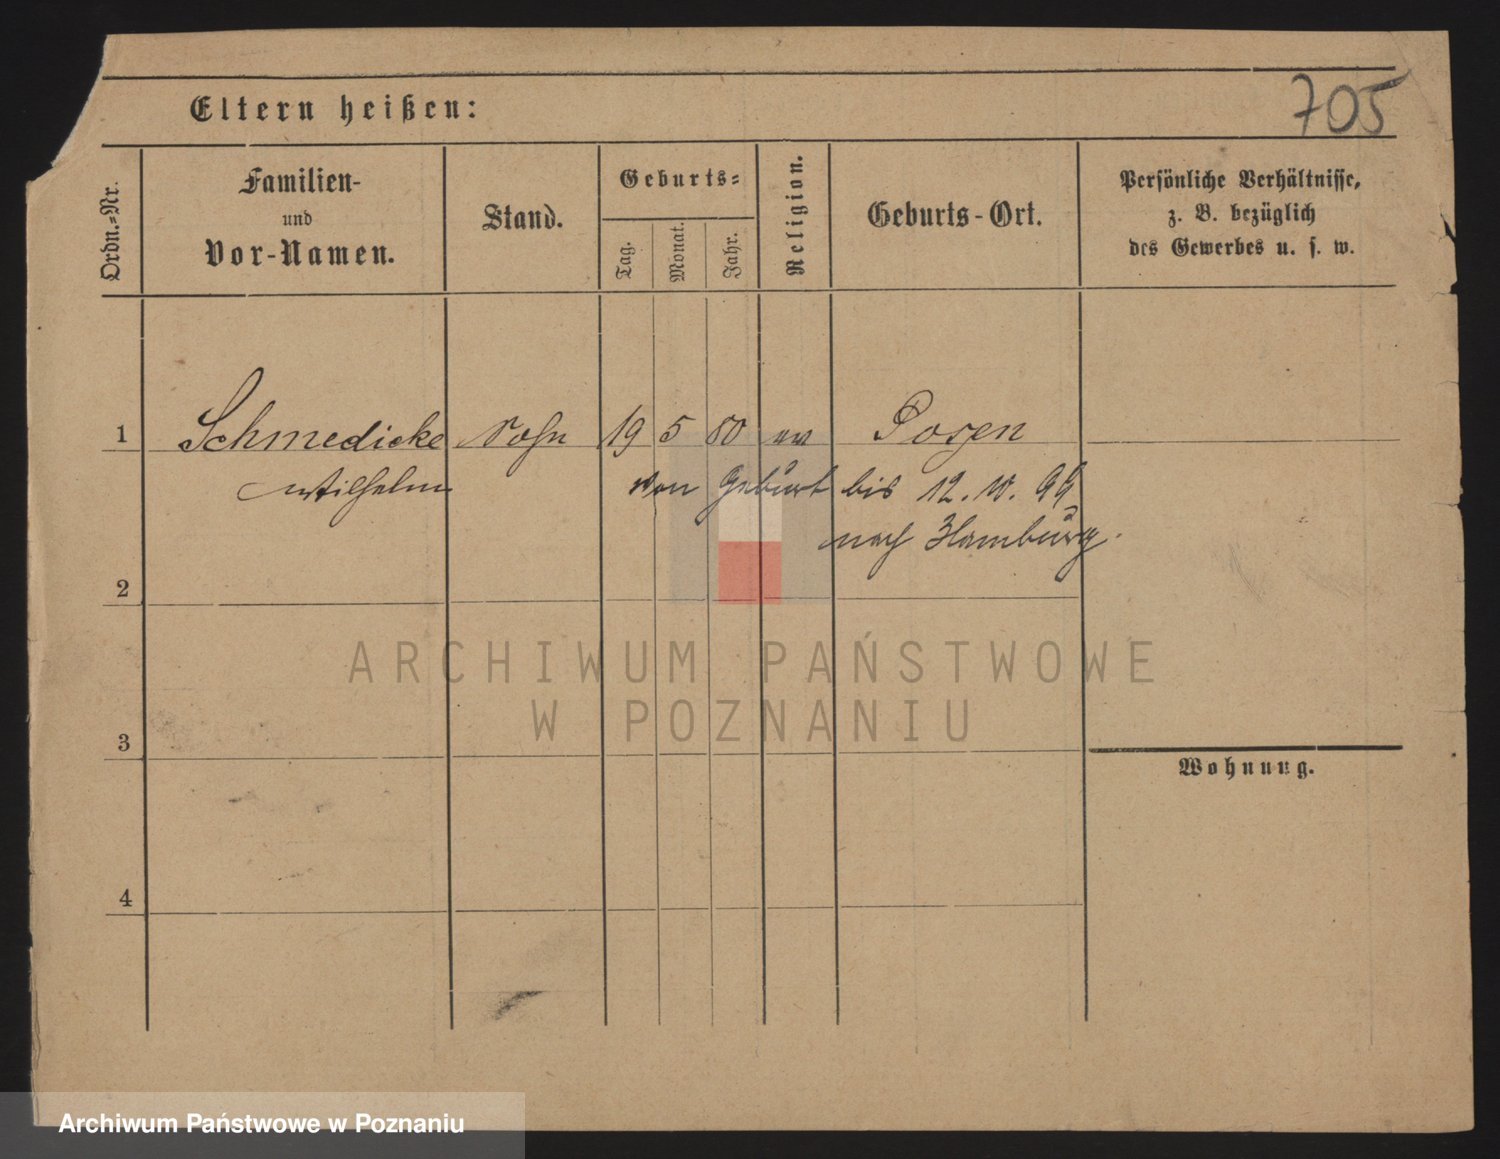 705
Eltern heißen:
Ordn.-Nr.
Familien-
und
Vor-Namen.
Stand.
Geburts-
Tag.
Monat.
Jahr.
Religion.
Geburts-Ort.
Persönliche Verhältnisse,
z. B. bezüglich
des Gewerbes u. s. w.
1 Schmedicke Sohn 19 5 80 ev Posen
Wilhelm von Geburt bis 12. 10. 99
nach Hamburg.
2
ARCHIWUM PAŃSTWOWE
W POZNANIU
3
Wohnung.
4
Archiwum Państwowe w Poznaniu